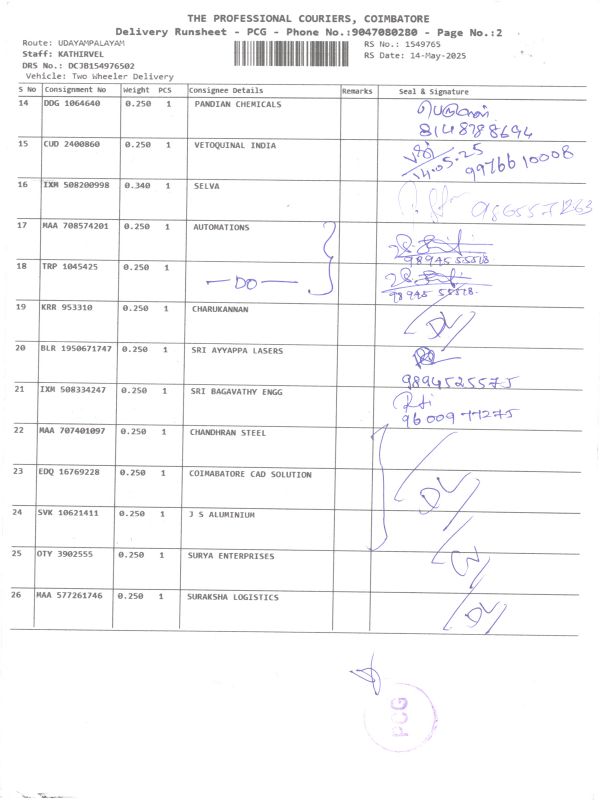 THE PROFESSIONAL COURIERS, COIMBATORE
Delivery Runsheet - PCG - Phone No.:9047080280 - Page No.:2
Route: UDAYAMPALAYAM RS No.: 1549765
Staff: KATHIRVEL RS Date: 14-May-2025
DRS No.: DCJB154976502
Vehicle: Two Wheeler Delivery
S No Consignment No Weight PCS Consignee Details Remarks Seal & Signature
14 DDG 1064640 0.250 1 PANDIAN CHEMICALS
8148788694
15 CUD 2400860 0.250 1 VETOQUINAL INDIA
14.05.25 9976610008
16 IXM 508200998 0.340 1 SELVA
17 MAA 708574201 0.250 1 AUTOMATIONS
9894555518
18 TRP 1045425 0.250 1 —DO—
98945 55518
19 KRR 953310 0.250 1 CHARUKANNAN
DL
20 BLR 1950671747 0.250 1 SRI AYYAPPA LASERS
9894525575
21 IXM 508334247 0.250 1 SRI BAGAVATHY ENGG
9600977275
22 MAA 707401097 0.250 1 CHANDHRAN STEEL
23 EDQ 16769228 0.250 1 COIMABATORE CAD SOLUTION
DL
24 SVK 10621411 0.250 1 J S ALUMINIUM
25 OTY 3902555 0.250 1 SURYA ENTERPRISES
26 MAA 577261746 0.250 1 SURAKSHA LOGISTICS
DL
PCG